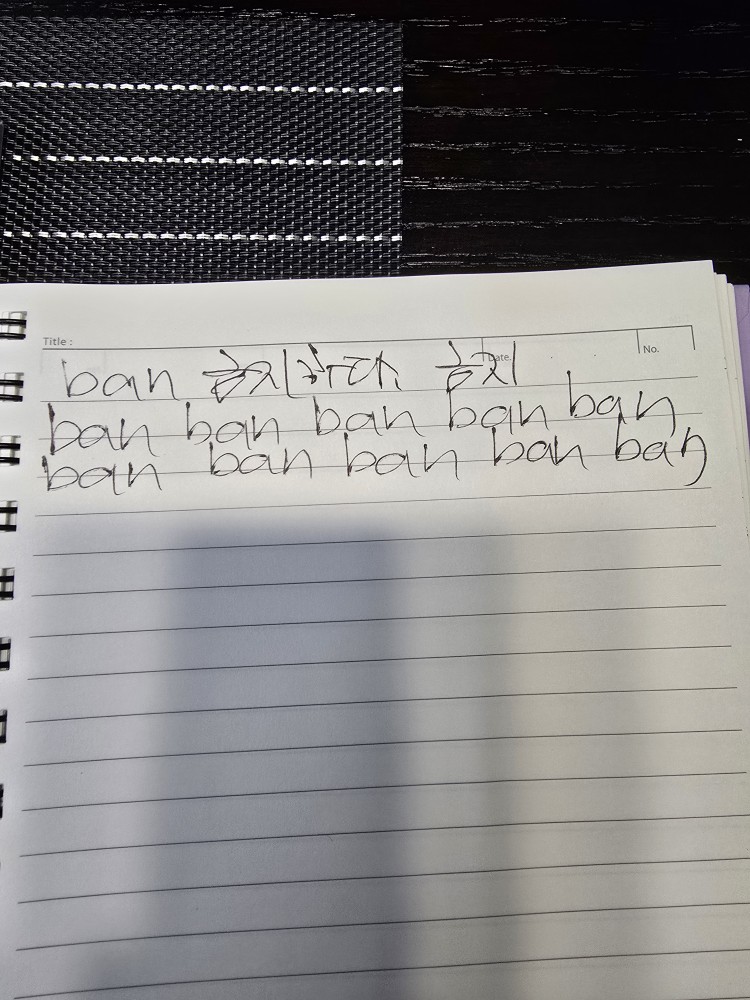 Title :
Date.
No.
ban 금지하다, 금지
ban ban ban ban ban
ban ban ban ban ban